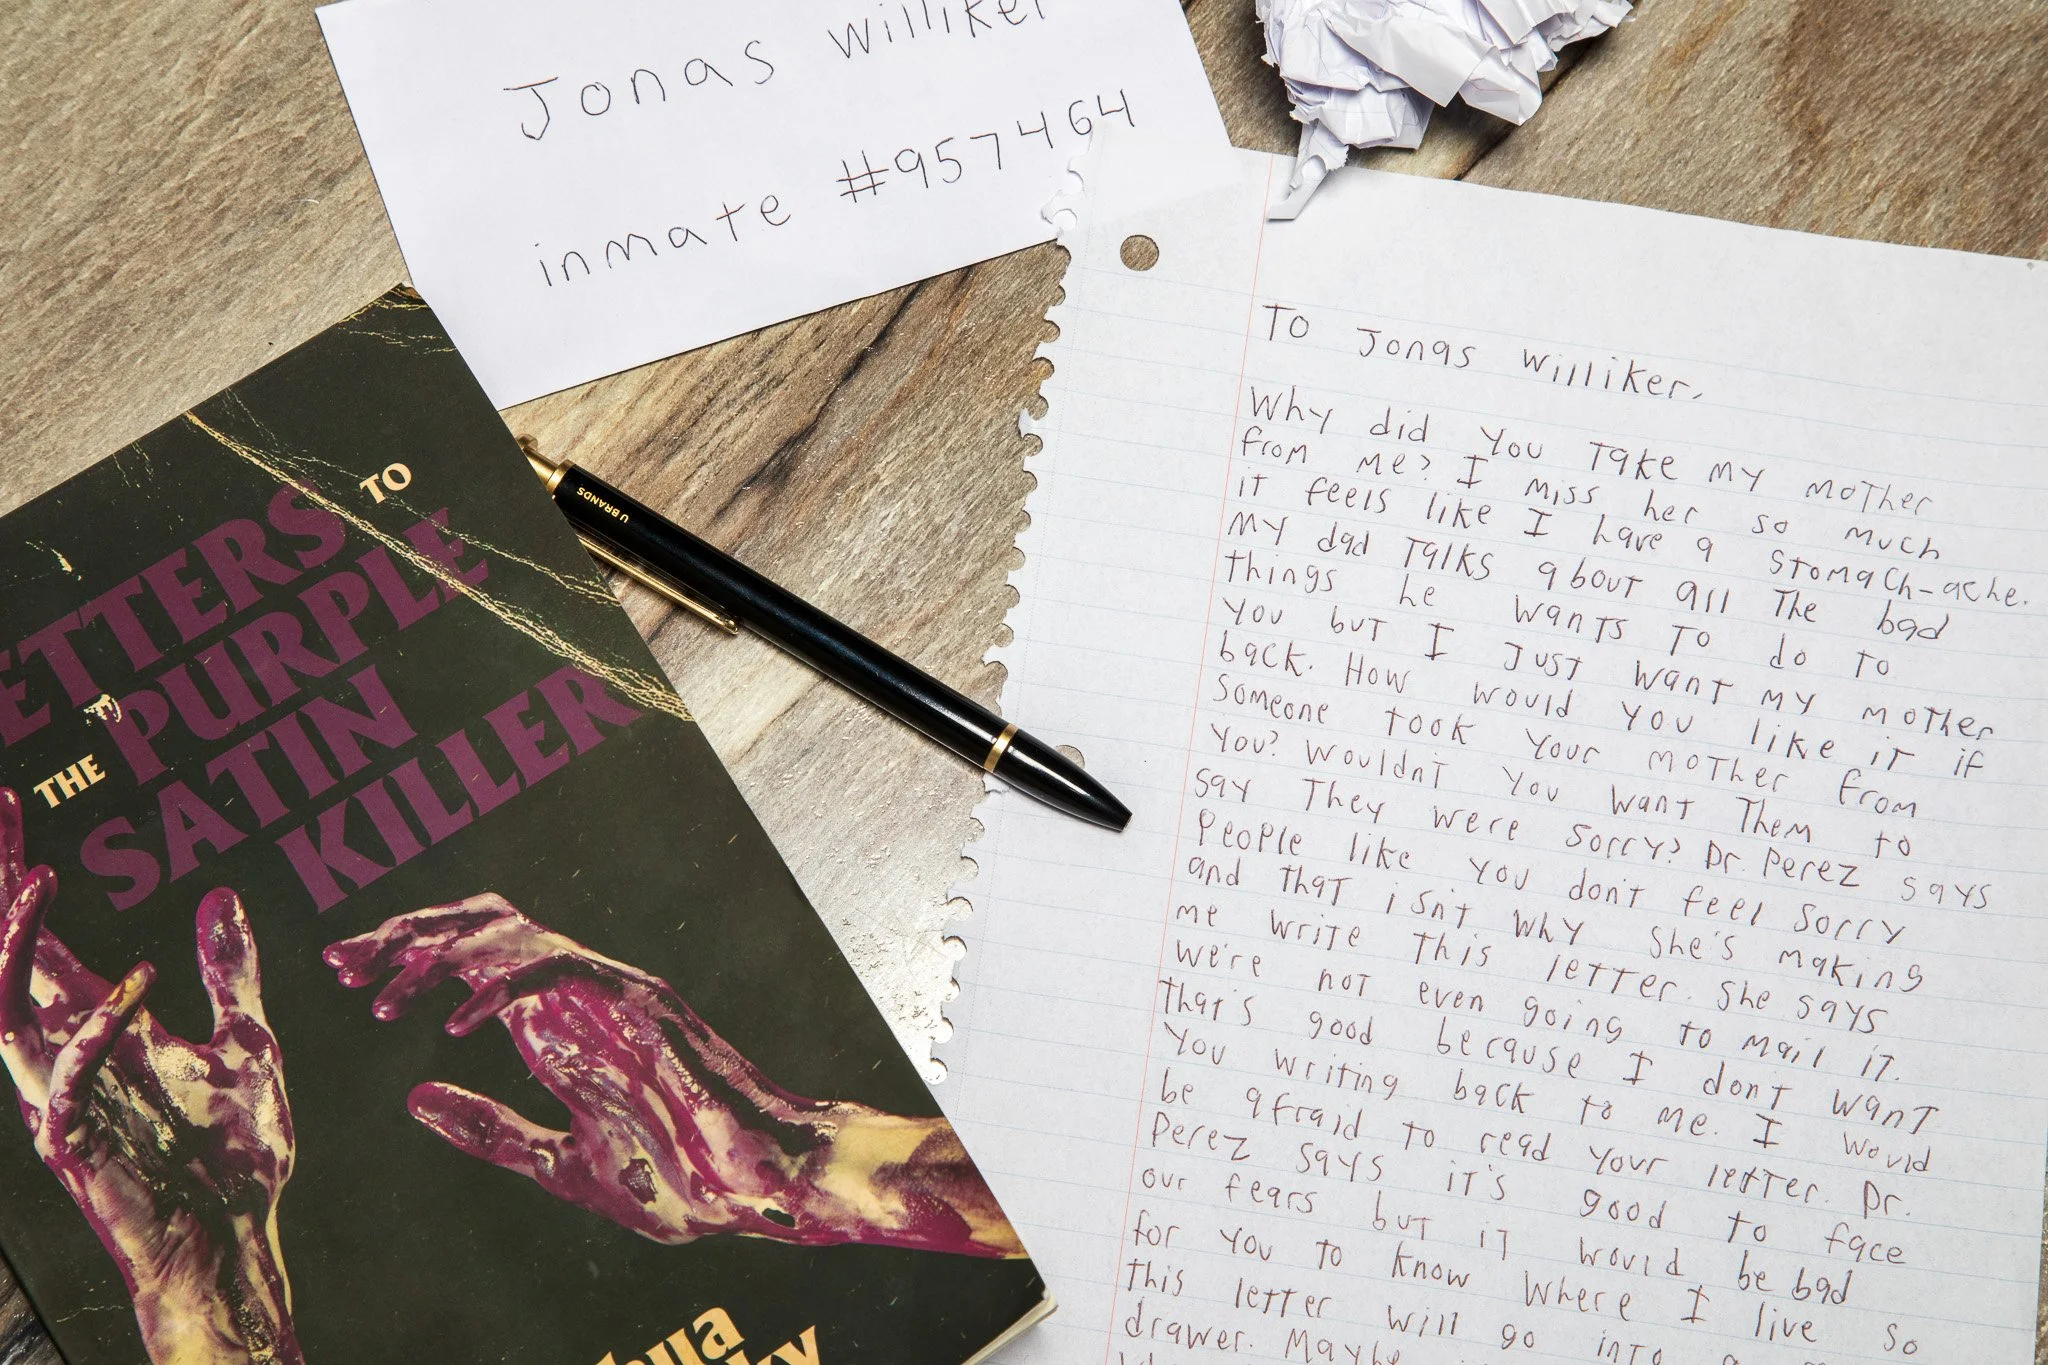 Jonas Williker
inmate #957464
TO
LETTERS
THE PURPLE
SATIN
KILLER
U BRANDS
To Jonas Williker,
Why did you take my mother
from me? I miss her so much
it feels like I have a stomach-ache.
My dad talks about all the bad
things he wants to do to
you but I just want my mother
back. How would you like it if
someone took your mother from
you? Wouldnt you want them to
say they were sorry? Dr. Perez says
people like you don't feel sorry
and that isn't why she's making
me write this letter. She says
we're not even going to mail it.
That's good because I don't want
you writing back to me. I would
be afraid to read your letter. Dr.
Perez says it's good to face
our fears but it would be bad
for you to know where I live so
this letter will go into a
drawer. Maybe